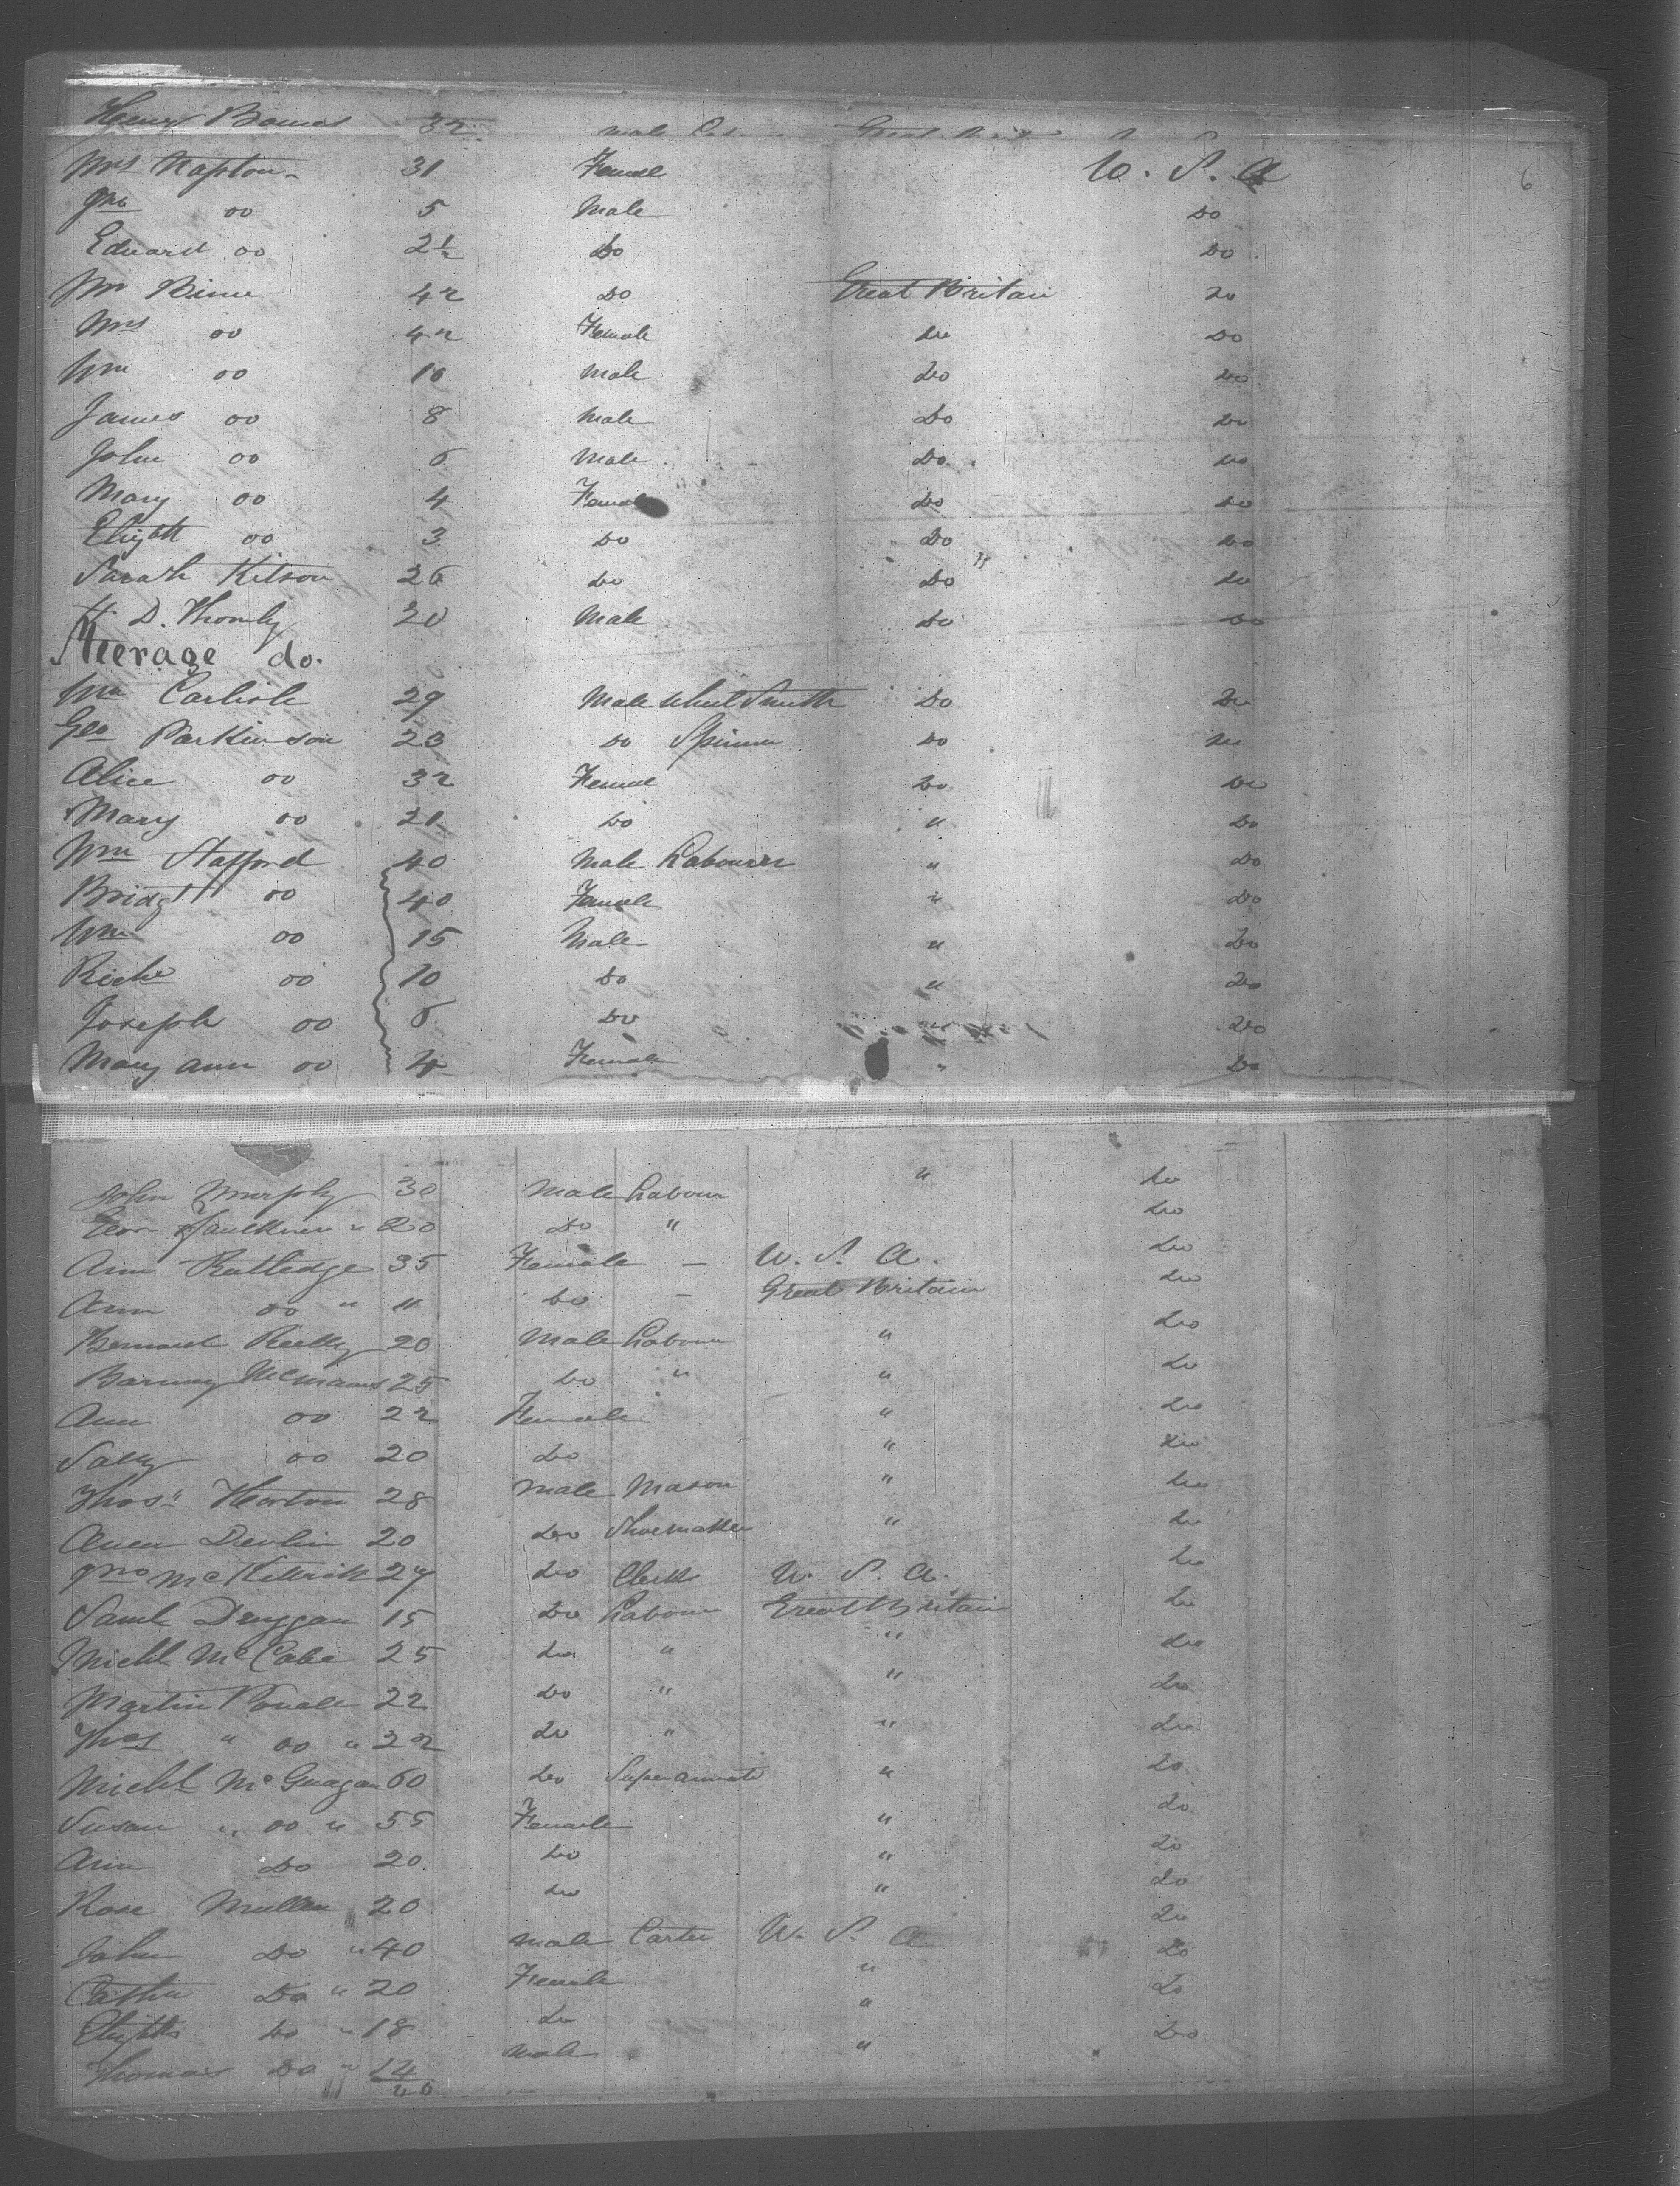 Henry Barnes 32 male Great Brit
Mrs Napton 31 Female U. S. A
Jno oo 5 Male Do
Edward oo 2½ Do Do
Mr Birne 42 Do Great Britain Do
Mrs oo 42 Female Do Do
Wm oo 10 Male Do Do
James oo 8 Male Do Do
John oo 6 Male Do Do
Mary oo 4 Female Do Do
Elizbth oo 3 Do Do Do
Sarah Kitson 26 Do Do " Do
H D. Thornly 20 Male Do Do
Steerage do.
Wm Carlisle 29 Male Wheel Smith Do Do
Geo Parkinson 23 Do Spinner Do Do
Alice oo 32 Female Do Do
Mary oo 21 Do " Do
Wm Stafford 40 Male Labourer " Do
Bridgt oo 40 Female " Do
Wm oo 15 Male " Do
Richd oo 10 Do " Do
Joseph oo 6 Do " Do
Mary Ann oo 4 Female " Do
John Murphy 30 Male Labour " Do
Faulkner " 20 Do " Do
Ann Rutledge 35 Female – U. S. A. Do
Ann oo " 11 Do – Great Britain Do
Bernard Reilly 20 Male Labour " Do
Barney McManus 25 Do " " Do
Ann oo 22 Female " Do
Sally oo 20 Do " Do
Thos Horton 28 Male Mason " Do
Owen Devlin 20 Do Shoemaker " Do
Jno McKittrick 27 Do Clerk U. S. A. Do
Saml Druggan 15 Do Labour Great Britain Do
Michl McCabe 25 Do " " Do
Martin 22 Do " " Do
Thos " oo " 22 Do " " Do
Michl McGuagan 60 Do Superannuate " Do
Susan " oo " 55 Female " Do
Ann Do 20 Do " Do
Rose Mullen 20 Do " Do
John Do " 40 Male Carter U. S. A Do
Cathn Do " 20 Female " Do
Elizbth Do " 18 Do " Do
Thomas Do " 14 Male " Do